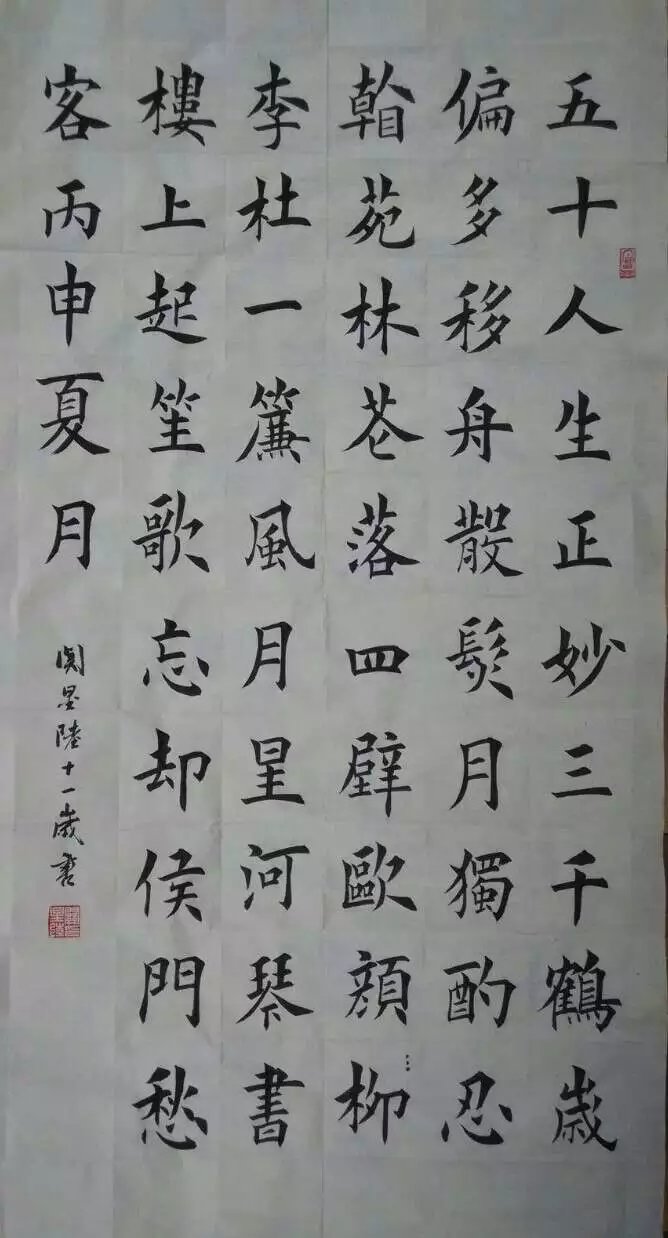 五十人生正妙三千鶴歲
偏多移舟散髮月獨酌忍
翰苑林花落四壁歐顏柳
李杜一簾風月星河琴書
樓上起笙歌忘却侯門愁
客丙申夏月
星陸十一歲書